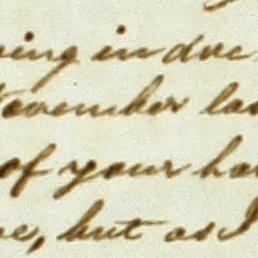 ing in doc
November las
of your ha
e, but as I